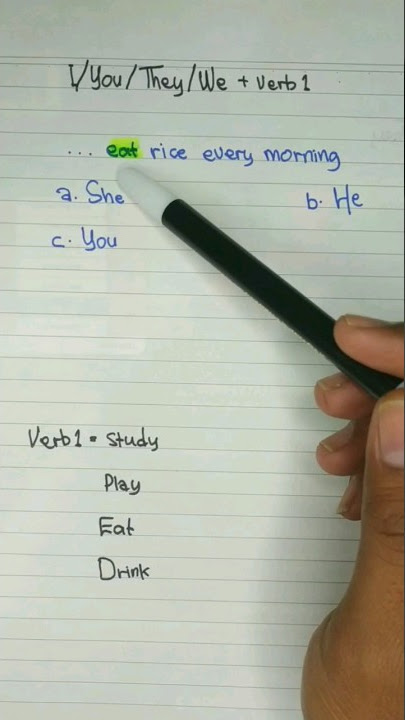 I/You/They/We + verb1
... eat rice every morning
a. She
b. He
c. You
Verb1 = study
Play
Eat
Drink